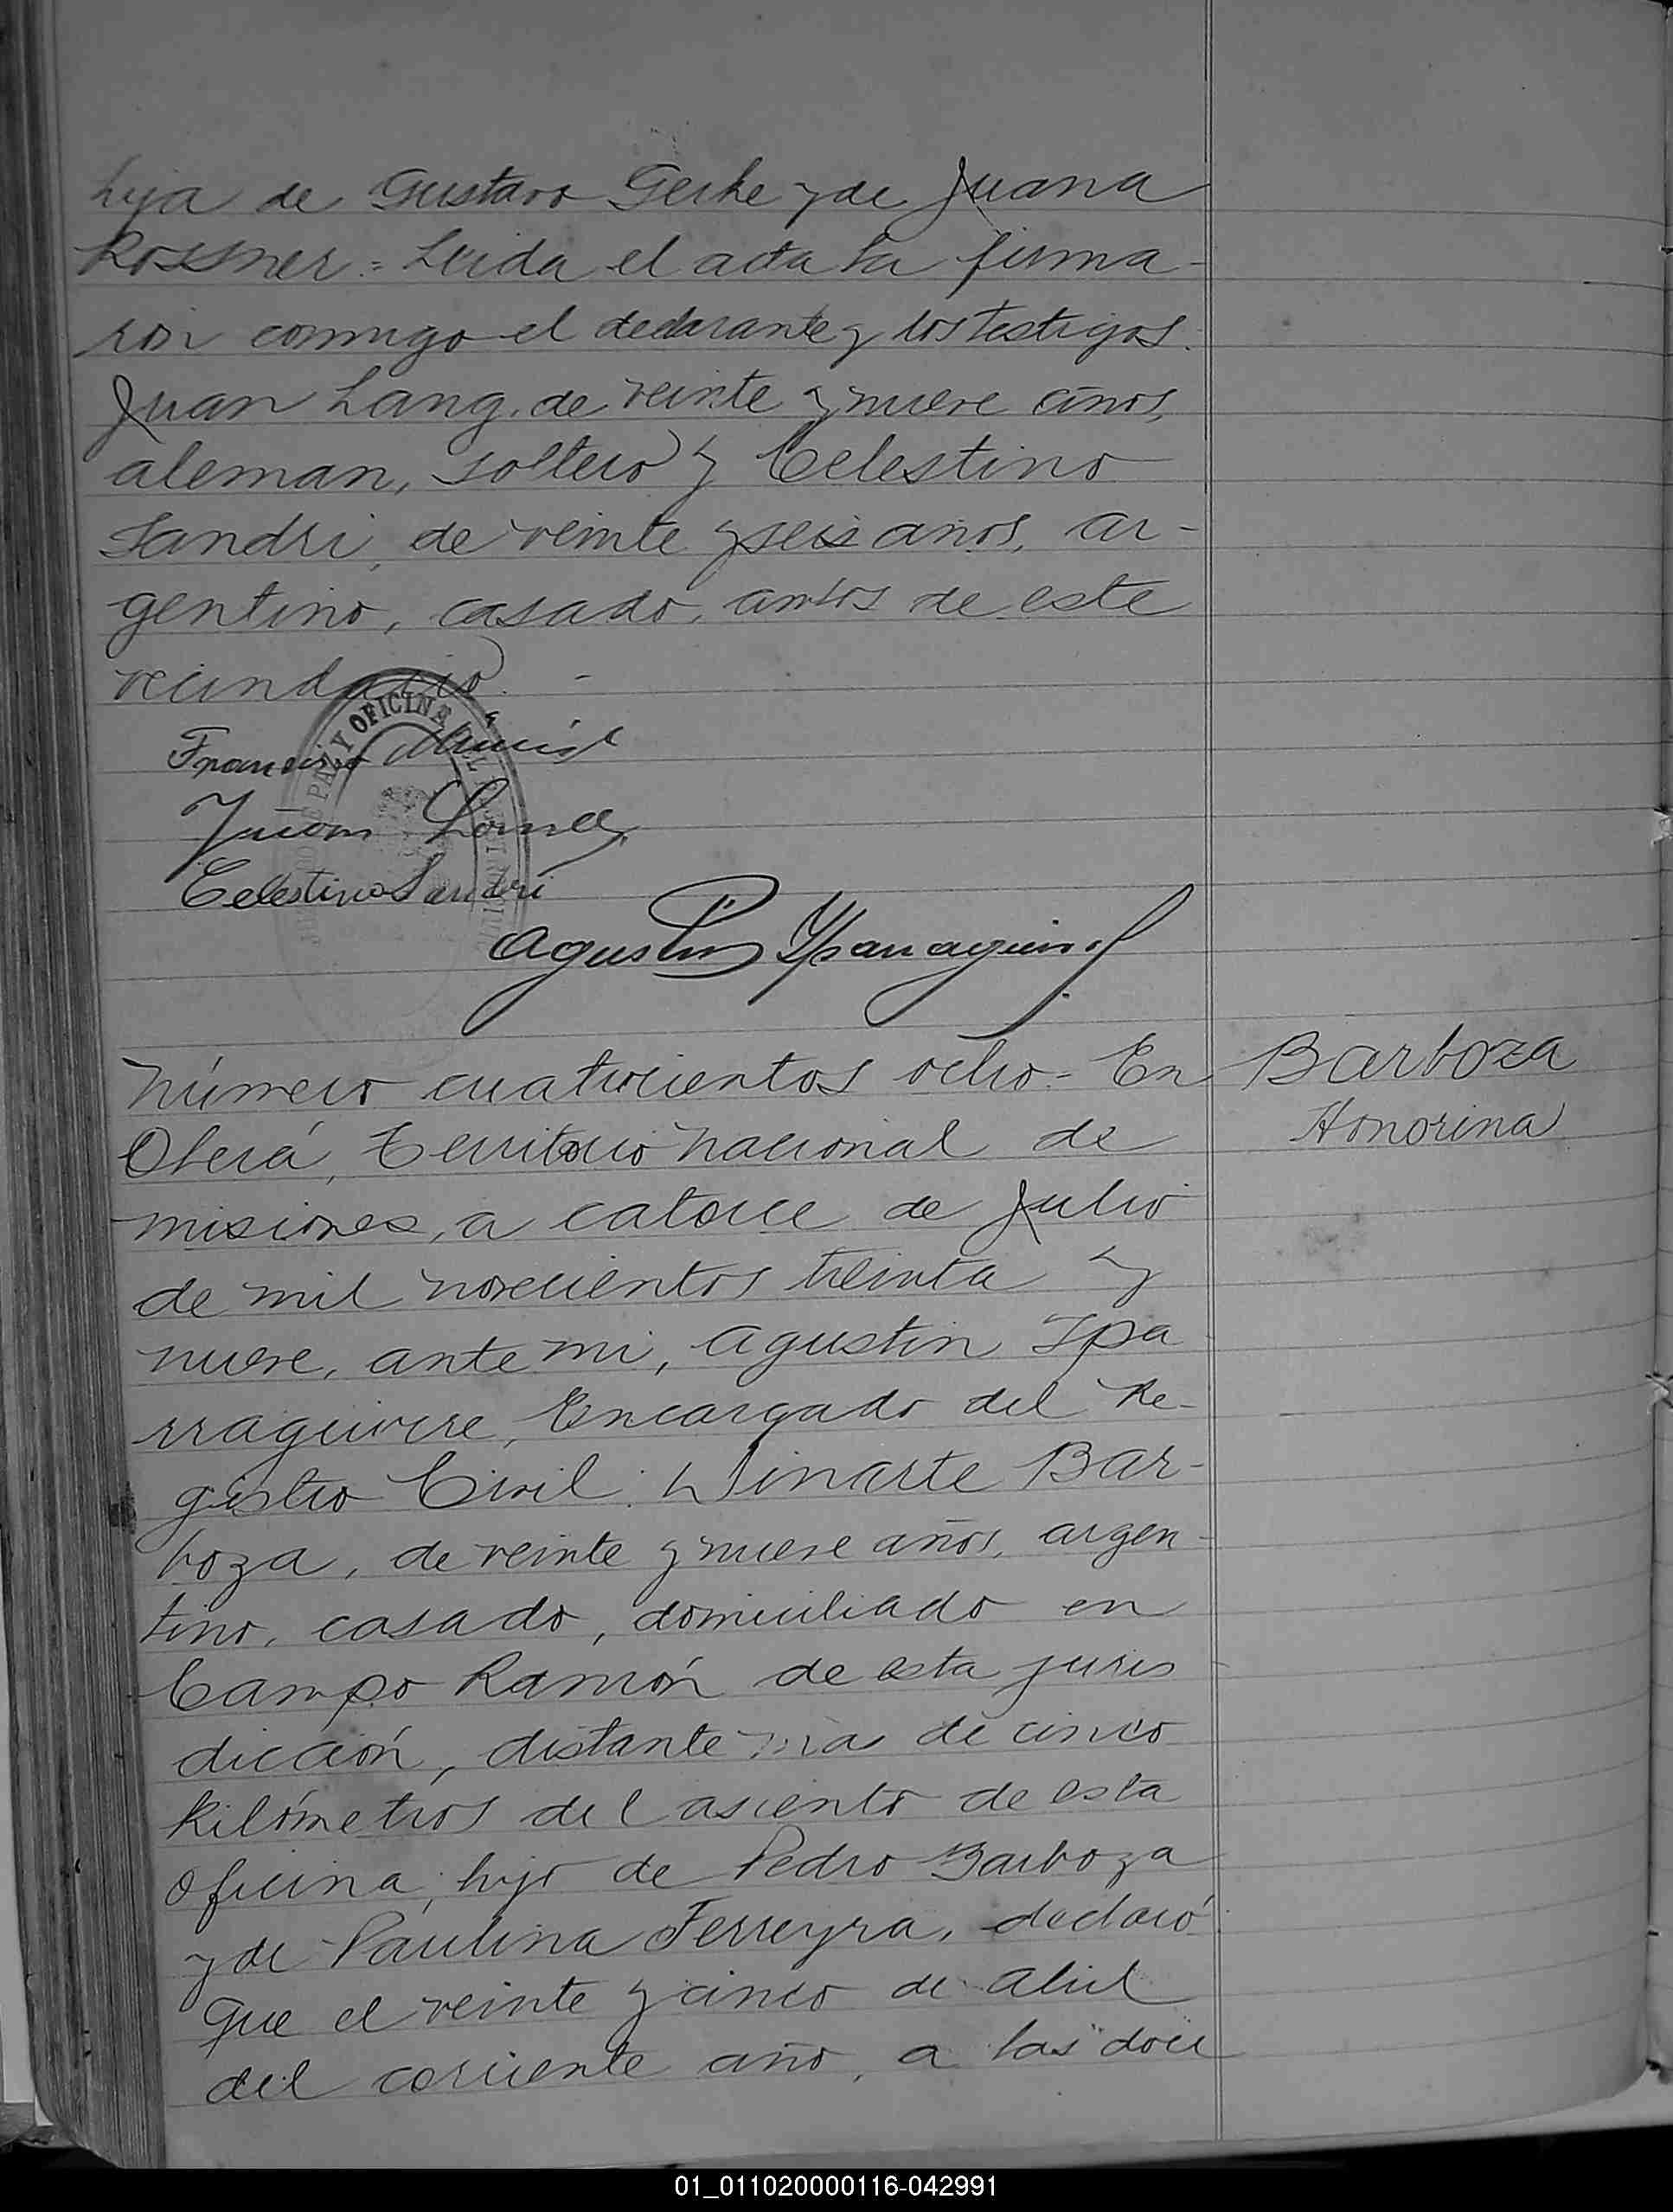 hija de Gustavo Gerke y de Juana
Rossner = Leida el acta la firma-
ron conmigo el declarante y los testigos.
Juan Lang, de veinte y nueve años,
aleman, soltero y Celestino
Sandri, de veinte y seis años, ar-
gentino, casado, ambos de este
vecindario. -
Francisco
Juan Lang
Celestino Sandri
PAZ Y OFICINA
Agustin Yparraguirre
Número cuatrocientos ocho - En
Oberá, Territorio Nacional de
Misiones, a catorce de Julio
de mil novecientos treinta y
nueve, ante mi, Agustin Ypa
rraguirre, Encargado del Re-
gistro Civil: Dinarte Bar-
boza, de veinte y nueve años, argen-
tino, casado, domiciliado en
Campo Ramón de esta juris
dicción, distante de cinco
kilómetros del asiento de esta
oficina, hijo de Pedro Barboza
y de Paulina Ferreyra, declaró
que el veinte y cinco de Abril
del corriente año, a las doce
Barboza
Honorina
01_011020000116-042991